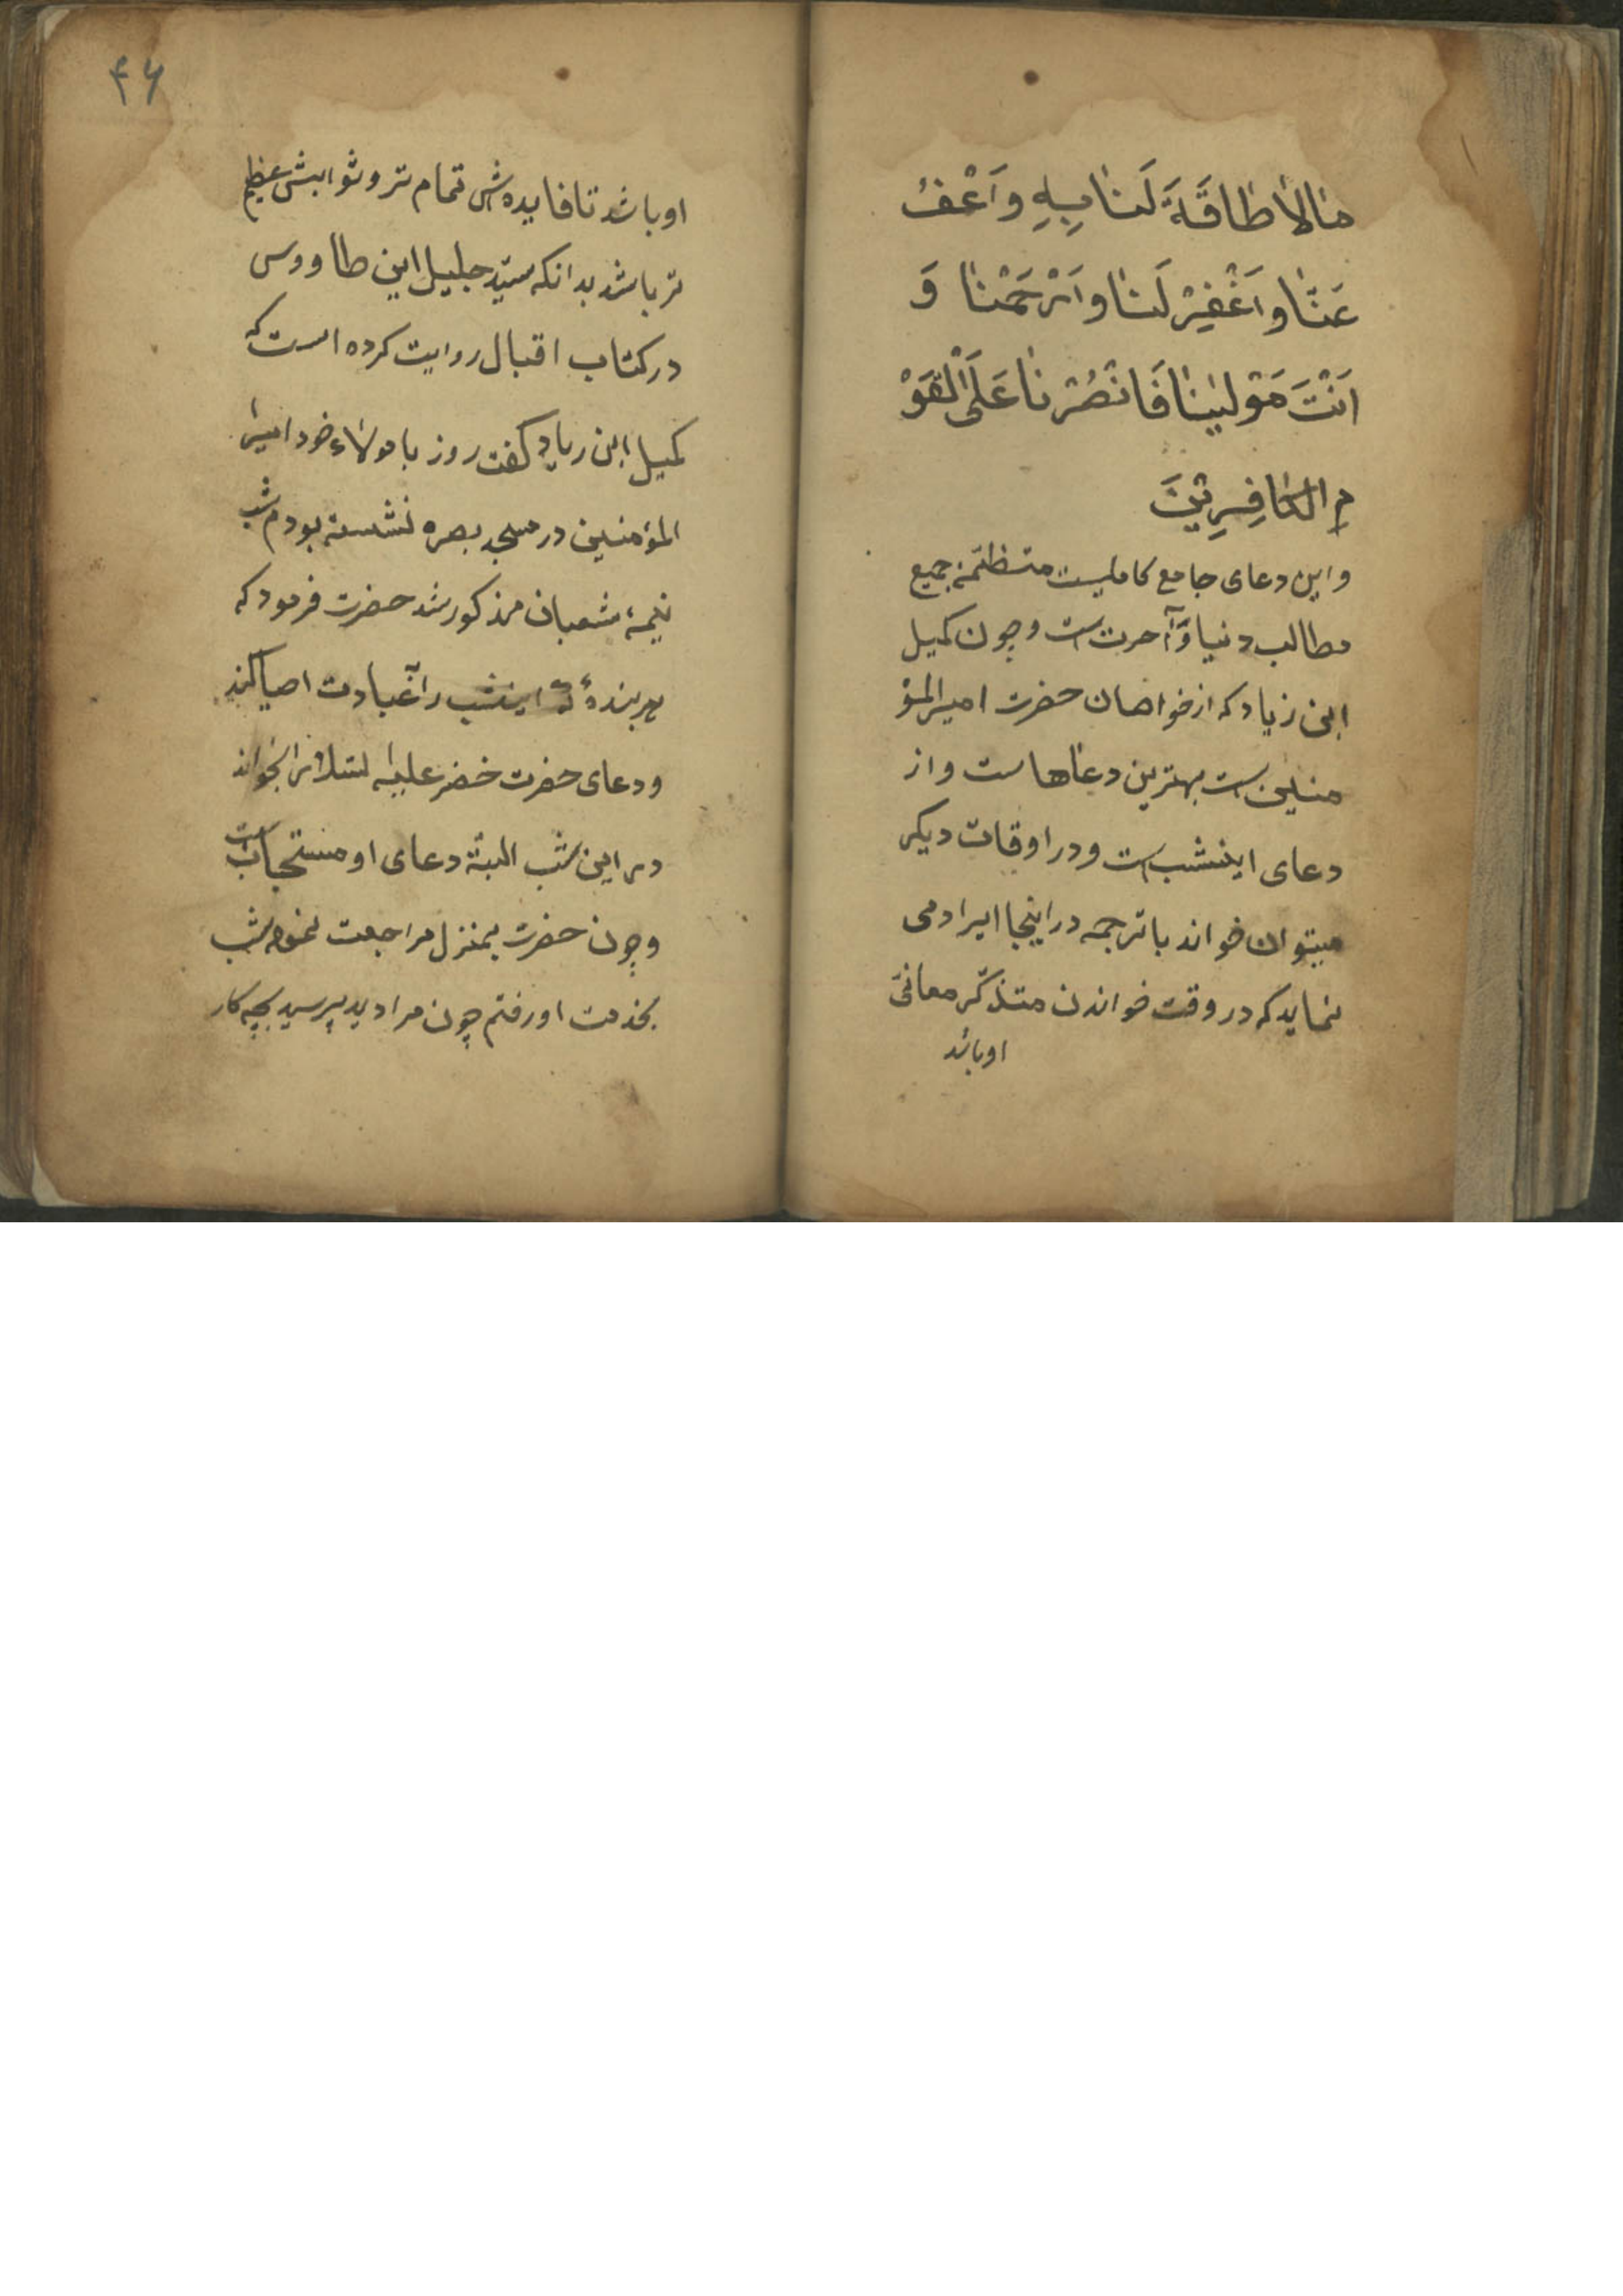 مٰالاٰ طٰاقَةَ لَنٰا بِهِ وَاَعْفُ
عَنّٰا وَاَغْفِرْ لَنٰا وَاَرْحَمْنٰا وَ
اَنْتَ مَوْلیٰنٰا فَانْصُرْنٰا عَلَی الْقَوْ
مِ الکٰافِرِیْنَ
و این دعای جامع کاملیست جمیع
مطالب دنیا وَآحرت است و چون کمیل
ابن زیاد که از خواصان حضرت امیرالمؤ
منین است بهترین دعاهاست و از
دعای اینشب است و در اوقات دیکر
میتوان خواند با ترجمه در اینجا ایراد می
نماید که در وقت خواندن متذکّر معانی
او باشد
۴۶
او باشد تا فایده‌ش تمام تر و ثوابش عظیم
تر باشد بدانکه سیّد جلیل ابن طاووس
در کتاب اقبال روایت کرده است که
کمیل ابن زیاد کفت روز با مولاء خود امیر
المؤمنین در مسجد بصره نشسته بودم شب
نیمهٔ شعبان مذکور شد حضرت فرمود که
هر بندهٔ که اینشب را بعبادت احیا کند
و دعای حضرت خضر علیه السلام را بخواند
در این شب البتّه دعای او مستجاب است
و چون حضرت بمنزل مراجعت نمود شب
بخدمت او رفتم چون مرا دید پرسید بچه کار